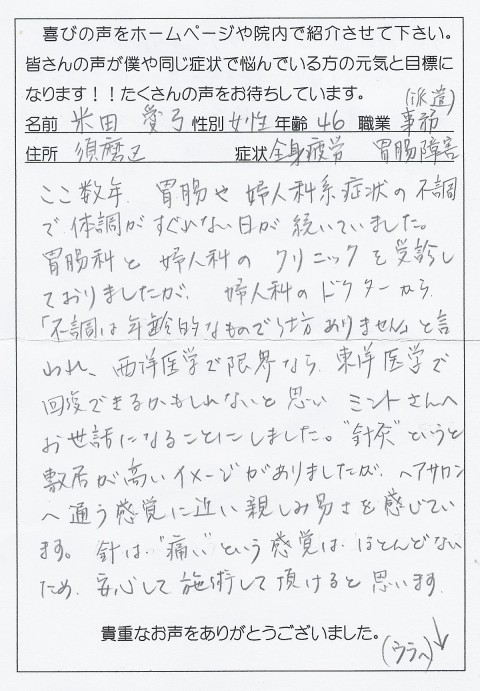 喜びの声をホームページや院内で紹介させて下さい。
皆さんの声が僕や同じ症状で悩んでいる方の元気と目標に
なります！！たくさんの声をお待ちしています。
(派遣)
名前 米田 愛弓 性別 女性 年齢 46 職業 事務
住所 須磨区 症状 全身疲労 胃腸障害
ここ数年、胃腸や婦人科系症状の不調
で体調がすぐれない日が続いていました。
胃腸科と婦人科のクリニックを受診し
ておりましたが、婦人科のドクターから、
「不調は年齢的なもので仕方ありません」と言
われ、西洋医学で限界なら、東洋医学で
回復できるかもしれないと思い ミントさんへ
お世話になることにしました。"針灸"というと
敷居が高いイメージがありましたが、ヘアサロン
へ通う感覚に近い親しみ易さを感じてい
ます。針は"痛い"という感覚は、ほとんどない
ため、安心して施術して頂けると思います。
貴重なお声をありがとうございました。
(ウラへ)